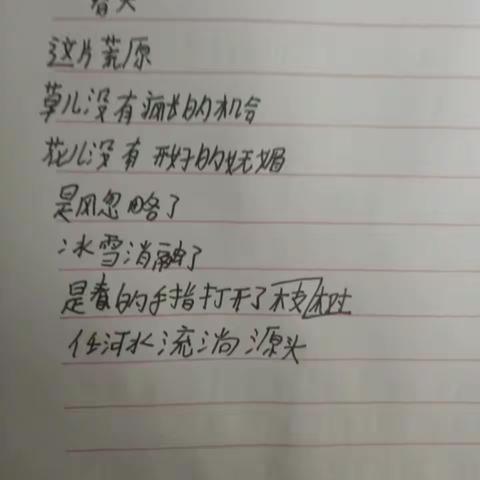 这片荒原
草儿没有疯长的机会
花儿没有的妩媚
是风忽略了
冰雪消融了
是春的手指打开了
任河水流淌源头